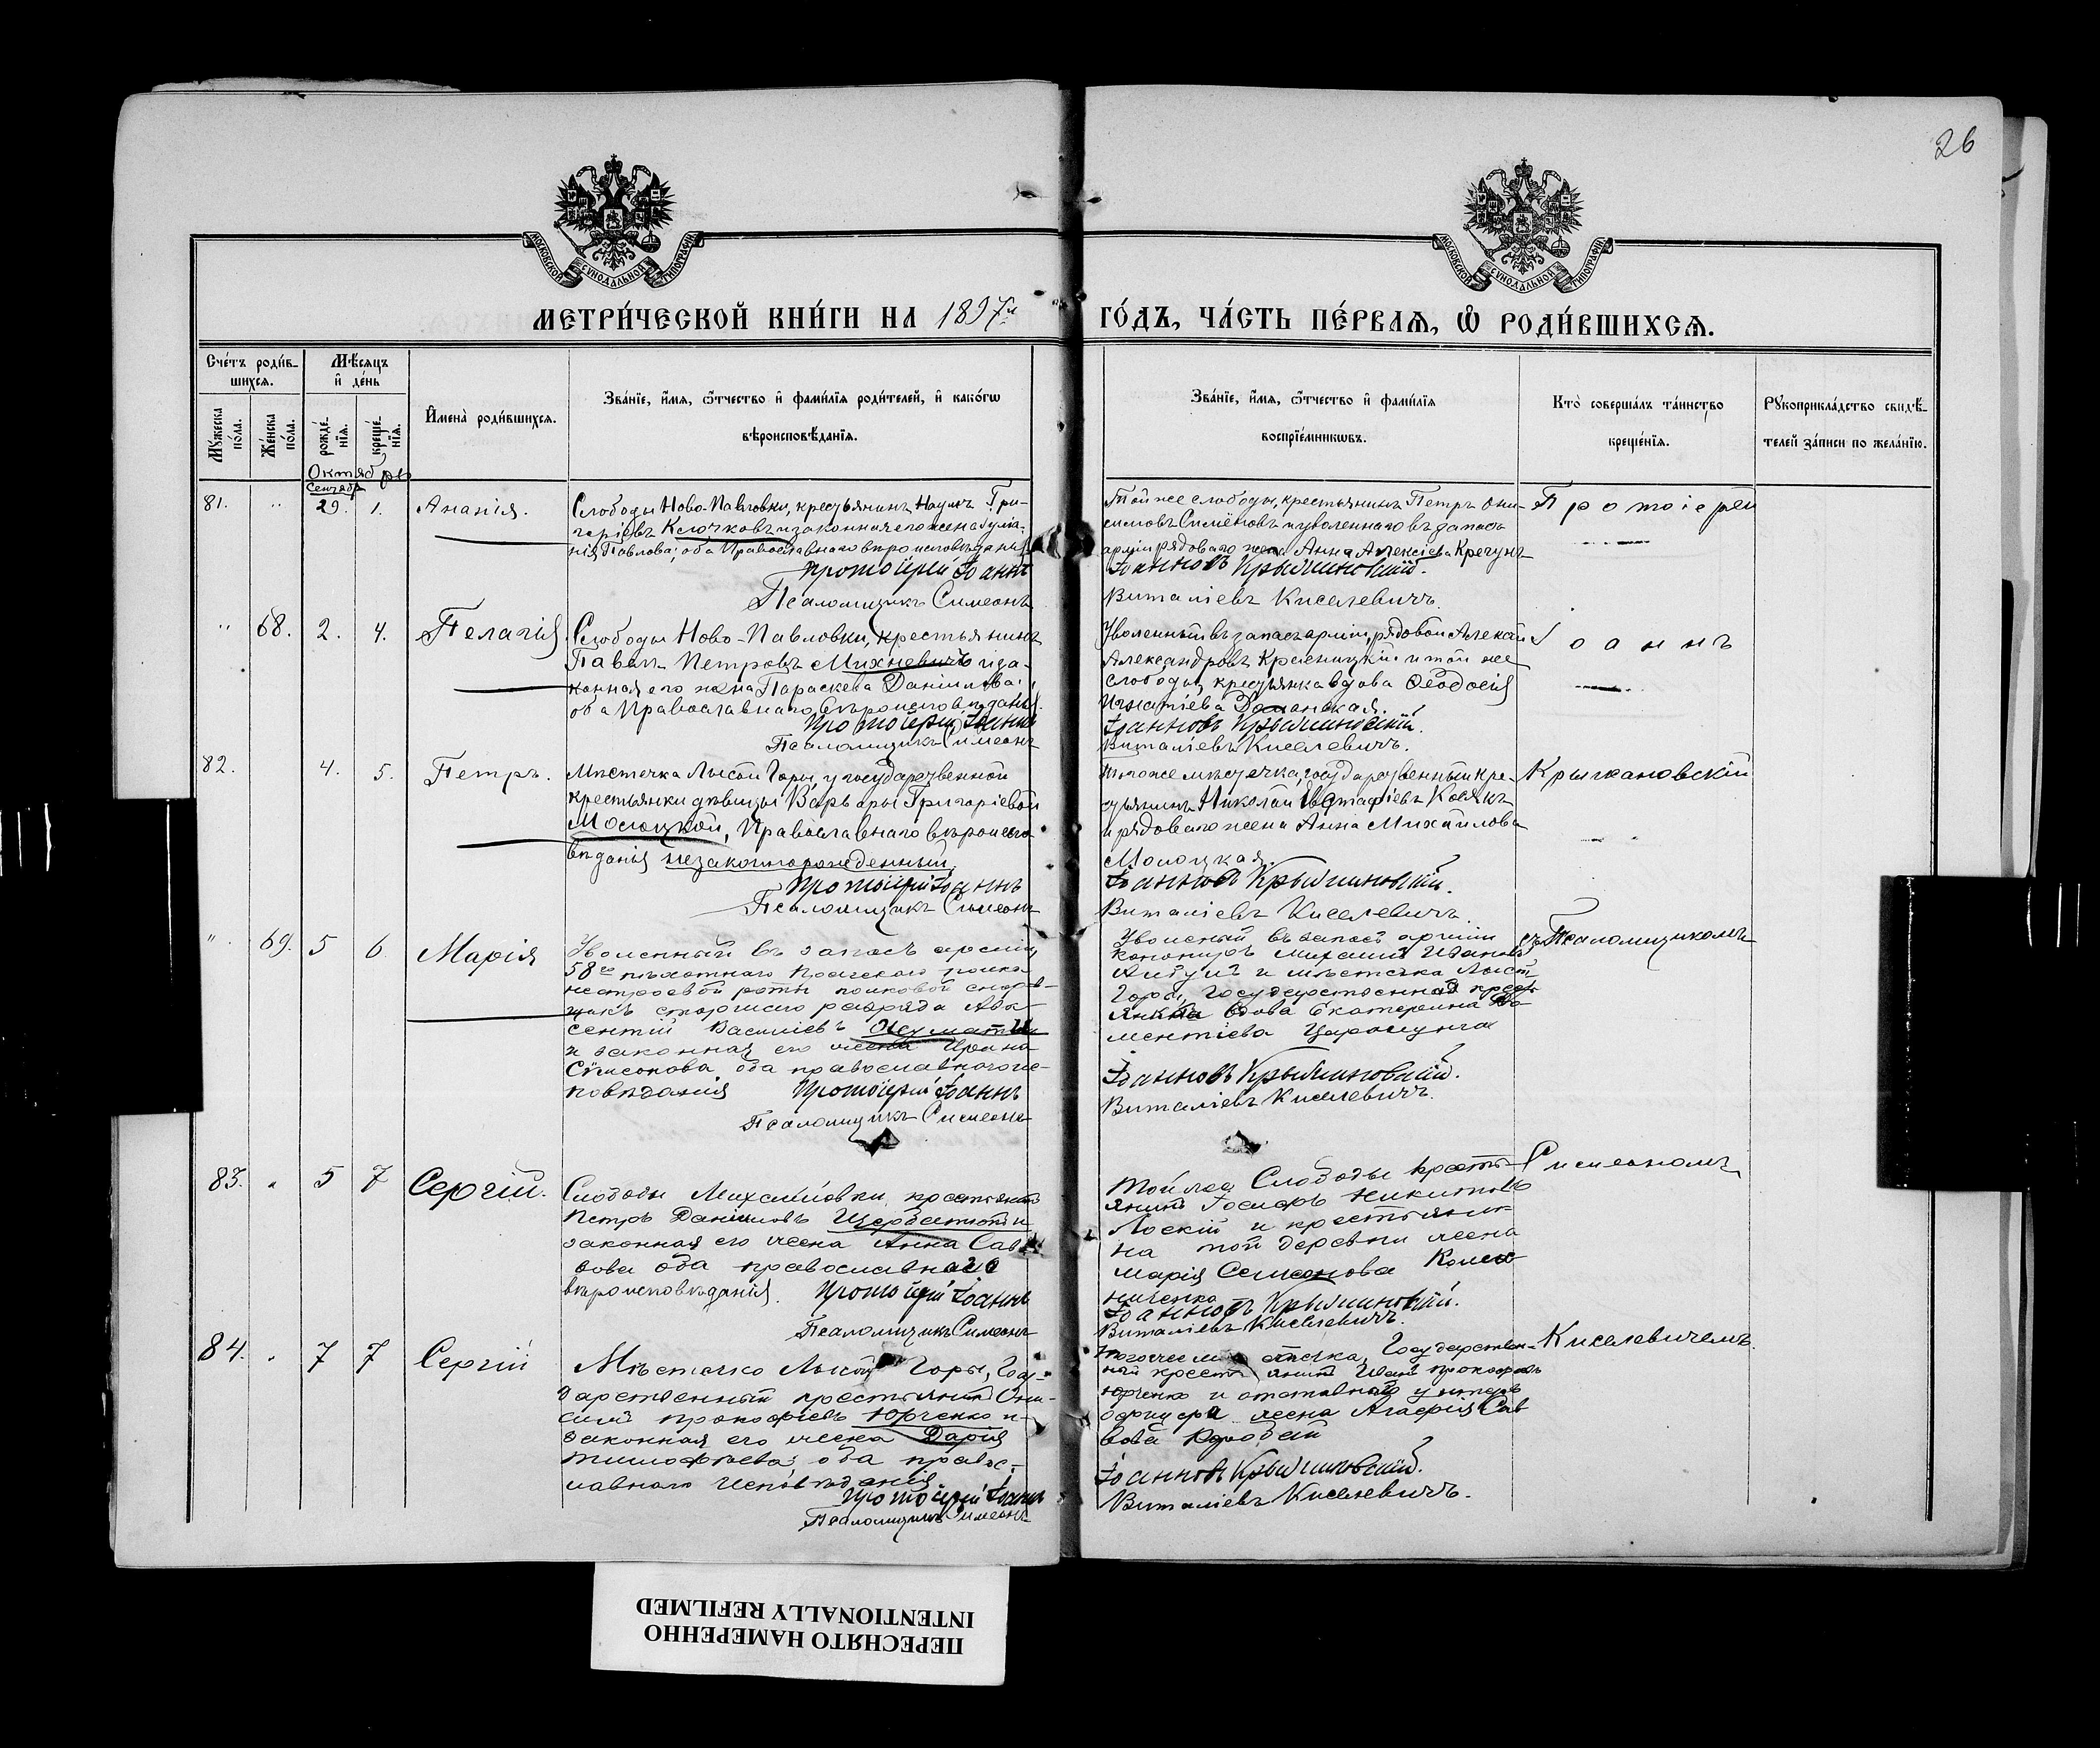 26
МОСКОВСКОЙ СѴНОДАЛЬНОЙ ТИПОГРАФІИ
МОСКОВСКОЙ СѴНОДАЛЬНОЙ ТИПОГРАФІИ
МЕТРИ́ЧЕСКОЙ КНИ́ГИ НА 1897й ГО́ДЪ, ЧА́СТЬ ПЕ́РВАѦ, Ѽ РОДИ́ВШИХСѦ.
Сче́тъ роди́в-
шихся.
Мѣ́сяцъ
и҆ де́нь
Мꙋ́жеска по́ла.
Же́нска по́ла.
рожде́-нїѧ.
креще́-нїѧ.
И҆мена̀ роди́вшихсѧ.
Зва́нїе, и҆́мѧ, ѻ҆́тчество и҆ фами́лїѧ роди́телей, и҆ како́гѡ
вѣроисповѣ́данїѧ.
Зва́нїе, и҆́мѧ, ѻ҆́тчество и҆ фами́лїѧ
воспрїе́мникѡвъ.
Кто̀ соверша́лъ та́инство
креще́нїѧ.
Рꙋкоприкла́дство свидѣ́-
телей за́писи по жела́нїю.
Октябрь
Сентябр
81. " 29. 1. Ананія.
Слободы Ново-Павловки, крестьянинъ Наумъ Гри-
горіевъ Клочковъ и законная его жена Іуліа-
нія Павлова; оба Православнаго вѣроисповѣданія
Протоіерей Іоаннъ
Псаломщикъ Симеонъ
Той же слободы, крестьянинъ Петръ Они-
симовъ Симёновъ и уволеннаго въ запасъ
арміи рядоваго жена Анна Алексіева Кречунъ
Іанновъ Крыжановскій.
Виталіевъ Киселевичъ.
Протоіерей
" 68. 2. 4. Пелагія
Слободы Ново-Павловки, крестьянинъ
Павелъ Петровъ Михневичъ и за-
конная его жена Параскева Даніилова;
оба Православнаго вѣроисповѣданія.
Протоіерей Іоаннъ
Псаломщикъ Симеонъ
Уволенный въ запасъ арміи, рядовой Алексѣй
Александровъ Красницкій и той же
слободы, крестьянка вдова Ѳеодосія
Игнатіева Романская.
Іоанновъ Крыжановскій.
Виталіевъ Киселевичъ.
Іоаннъ
82. 4. 5. Петръ.
Мѣстечка Лысой Горы, у государственной
крестьянки дѣвицы Варвары Григоріевой
Молоцкой, Православнаго вѣроиспо-
вѣданія незаконнорожденный.
Протоіерей Іоаннъ
Псаломщикъ Симеонъ
Того же мѣстечка, государственный кре-
стьянинъ Николай Евстафіевъ Косякъ
и рядоваго жена Анна Михайлова
Молоцкая.
Іоанновъ Крыжановскій.
Виталіевъ Киселевичъ.
Крыжановскій
" 69. 5 6 Марія
Уволенный въ запасъ арміи,
58го пѣхотнаго Пражскаго полка
нестроевой роты полковой
старшаго разряда Авк-
сентій Василіевъ
и законная его жена Ирина
Сѵмеонова, оба православнаго ис-
повѣданія Протоіерей Іоаннъ
Псаломщикъ Симеонъ
Уволеный въ запасъ арміи
канониръ Михаилъ Ивановъ
и мѣстечка Лысой
Горы, Государственная крест
янка вдова Екатерина До-
ментіева
Іоанновъ Крыжановскій.
Виталіевъ Киселевичъ.
съ Псаломщикомъ
83. " 5 7 Сергій.
Слободы Михайловки крестьянинъ
Петръ Даніиловъ Щербатюк и
законная его жена Анна Сав-
вова оба православнаго
вѣроисповѣданія. Протоіерей Іоаннъ
Псаломщикъ Симеонъ
Той же Слободы крестъ-
янинъ Іосифъ Никитовъ
Лоскій и крестьяни-
на той деревни жена
Марія Семенова
Іоанновъ Крыжановскій.
Виталіевъ Киселевичъ.
Симеономъ
84. " 7 7 Сергій
Мѣстечко Лысой Горы, Госу-
дарственный крестьянинъ Они-
симъ Прокофіевъ Юрченко и
законная его жена Дарія
Тимофѣева; оба право-
славнаго исповѣданія.
Протоіерей Іоаннъ
Псаломщикъ Симеонъ
Тогоже мѣстечка, Государствен-
ный крестьянинъ Иванъ Прокофіевъ
Юрченко и отставнаго унтеръ
офицера жена Агафія Сав
вова
Іоанновъ Крыжановскій.
Виталіевъ Киселевичъ.
Киселевичемъ.
ПЕРЕСНЯТО НАМЕРЕННО
INTENTIONALLY REFILMED